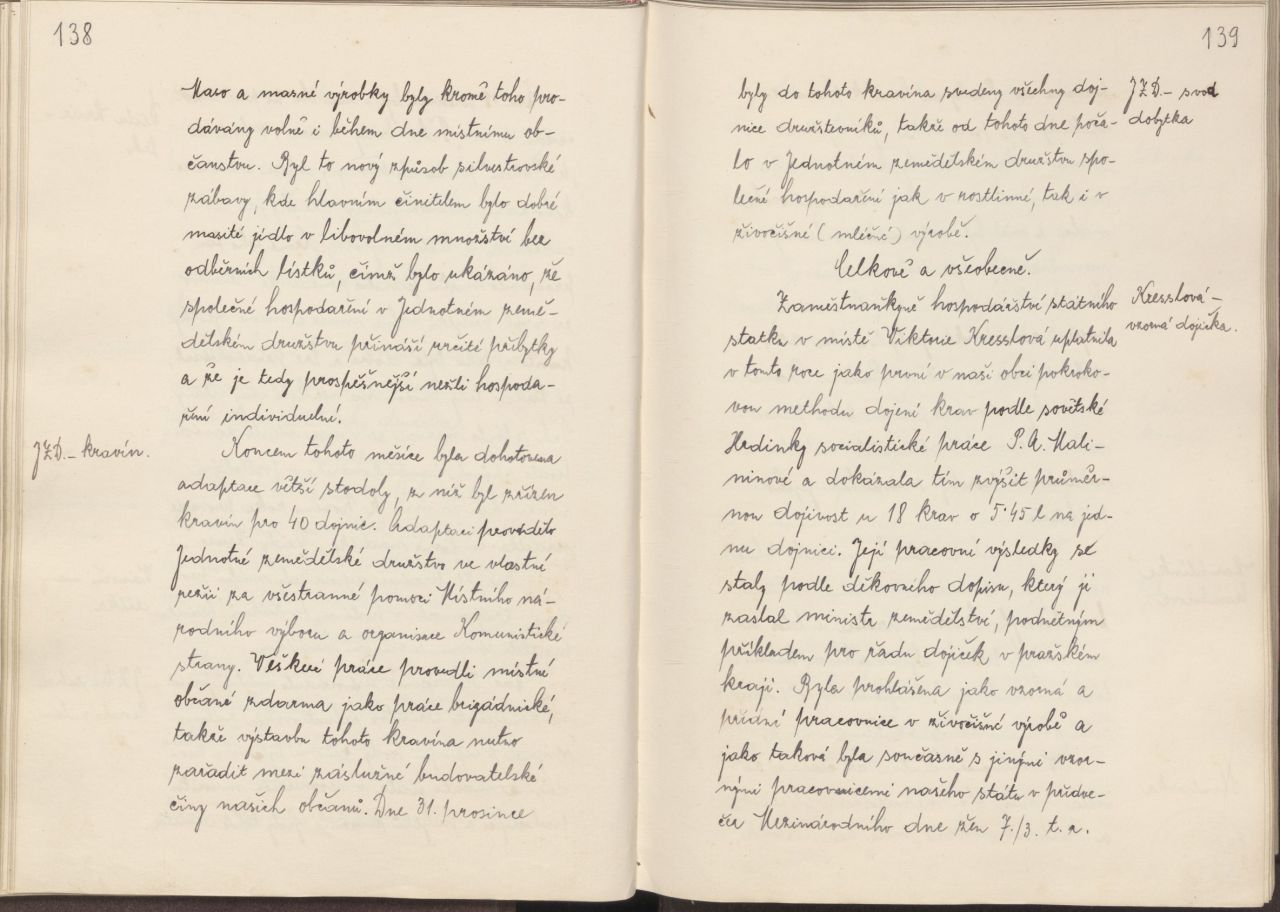 138
Maso a masné výrobky byly kromě toho pro-
dávány volně i během dne místnímu ob-
čanstvu. Byl to nový způsob silvestrovské
zábavy, kde hlavním činitelem bylo dobré
masité jídlo v libovolném množství bez
odběrních lístků, čímž bylo ukázáno, že
společné hospodaření v Jednotném země-
dělském družstvu přináší určité přibytky
a že je tedy prospěšnější nežli hospoda-
ření individuelní.
JZD. – kravín.
Koncem tohoto měsíce byla dohotovena
adaptace větší stodoly, z níž byl zřízen
kravín pro 40 dojnic. Adaptaci provádělo
Jednotné zemědělské družstvo ve vlastní
režii za všestranné pomoci Místního ná-
rodního výboru a organisace Komunistické
strany. Veškeré práce provedli místní
občané zdarma jako práce brigádnické,
takže výstavbu tohoto kravína nutno
zařadit mezi záslužné budovatelské
činy našich občanů. Dne 31. prosince
139
byly do tohoto kravína svedeny všechny doj-
nice družstevníků, takže od tohoto dne poča-
lo v Jednotném zemědělském družstvu spo-
lečné hospodaření jak v rostlinné, tak i v
živočišné (mléčné) výrobě.
JZD. – svod
dobytka
Celkově a všeobecně.
Zaměstnankyně hospodářství státního
statku v místě Viktorie Kresslová uplatnila
v tomto roce jako první v naší obci pokroko-
vou methodu dojení krav podle sovětské
Hrdinky socialistické práce P. A. Mali-
ninové a dokázala tím zvýšit průměr-
nou dojivost u 18 krav o 5·45 l na jed-
nu dojnici. Její pracovní výsledky se
staly podle děkovného dopisu, který jí
zaslal ministr zemědělství, podnětným
příkladem pro řadu dojiček v pražském
kraji. Byla prohlášena jako vzorná a
přední pracovnice v živočišné výrobě a
jako taková byla současně s jinými vzor-
nými pracovnicemi našeho státu v předve-
čer Mezinárodního dne žen 7./3. t. r.
Kresslová –
vzorná dojička.